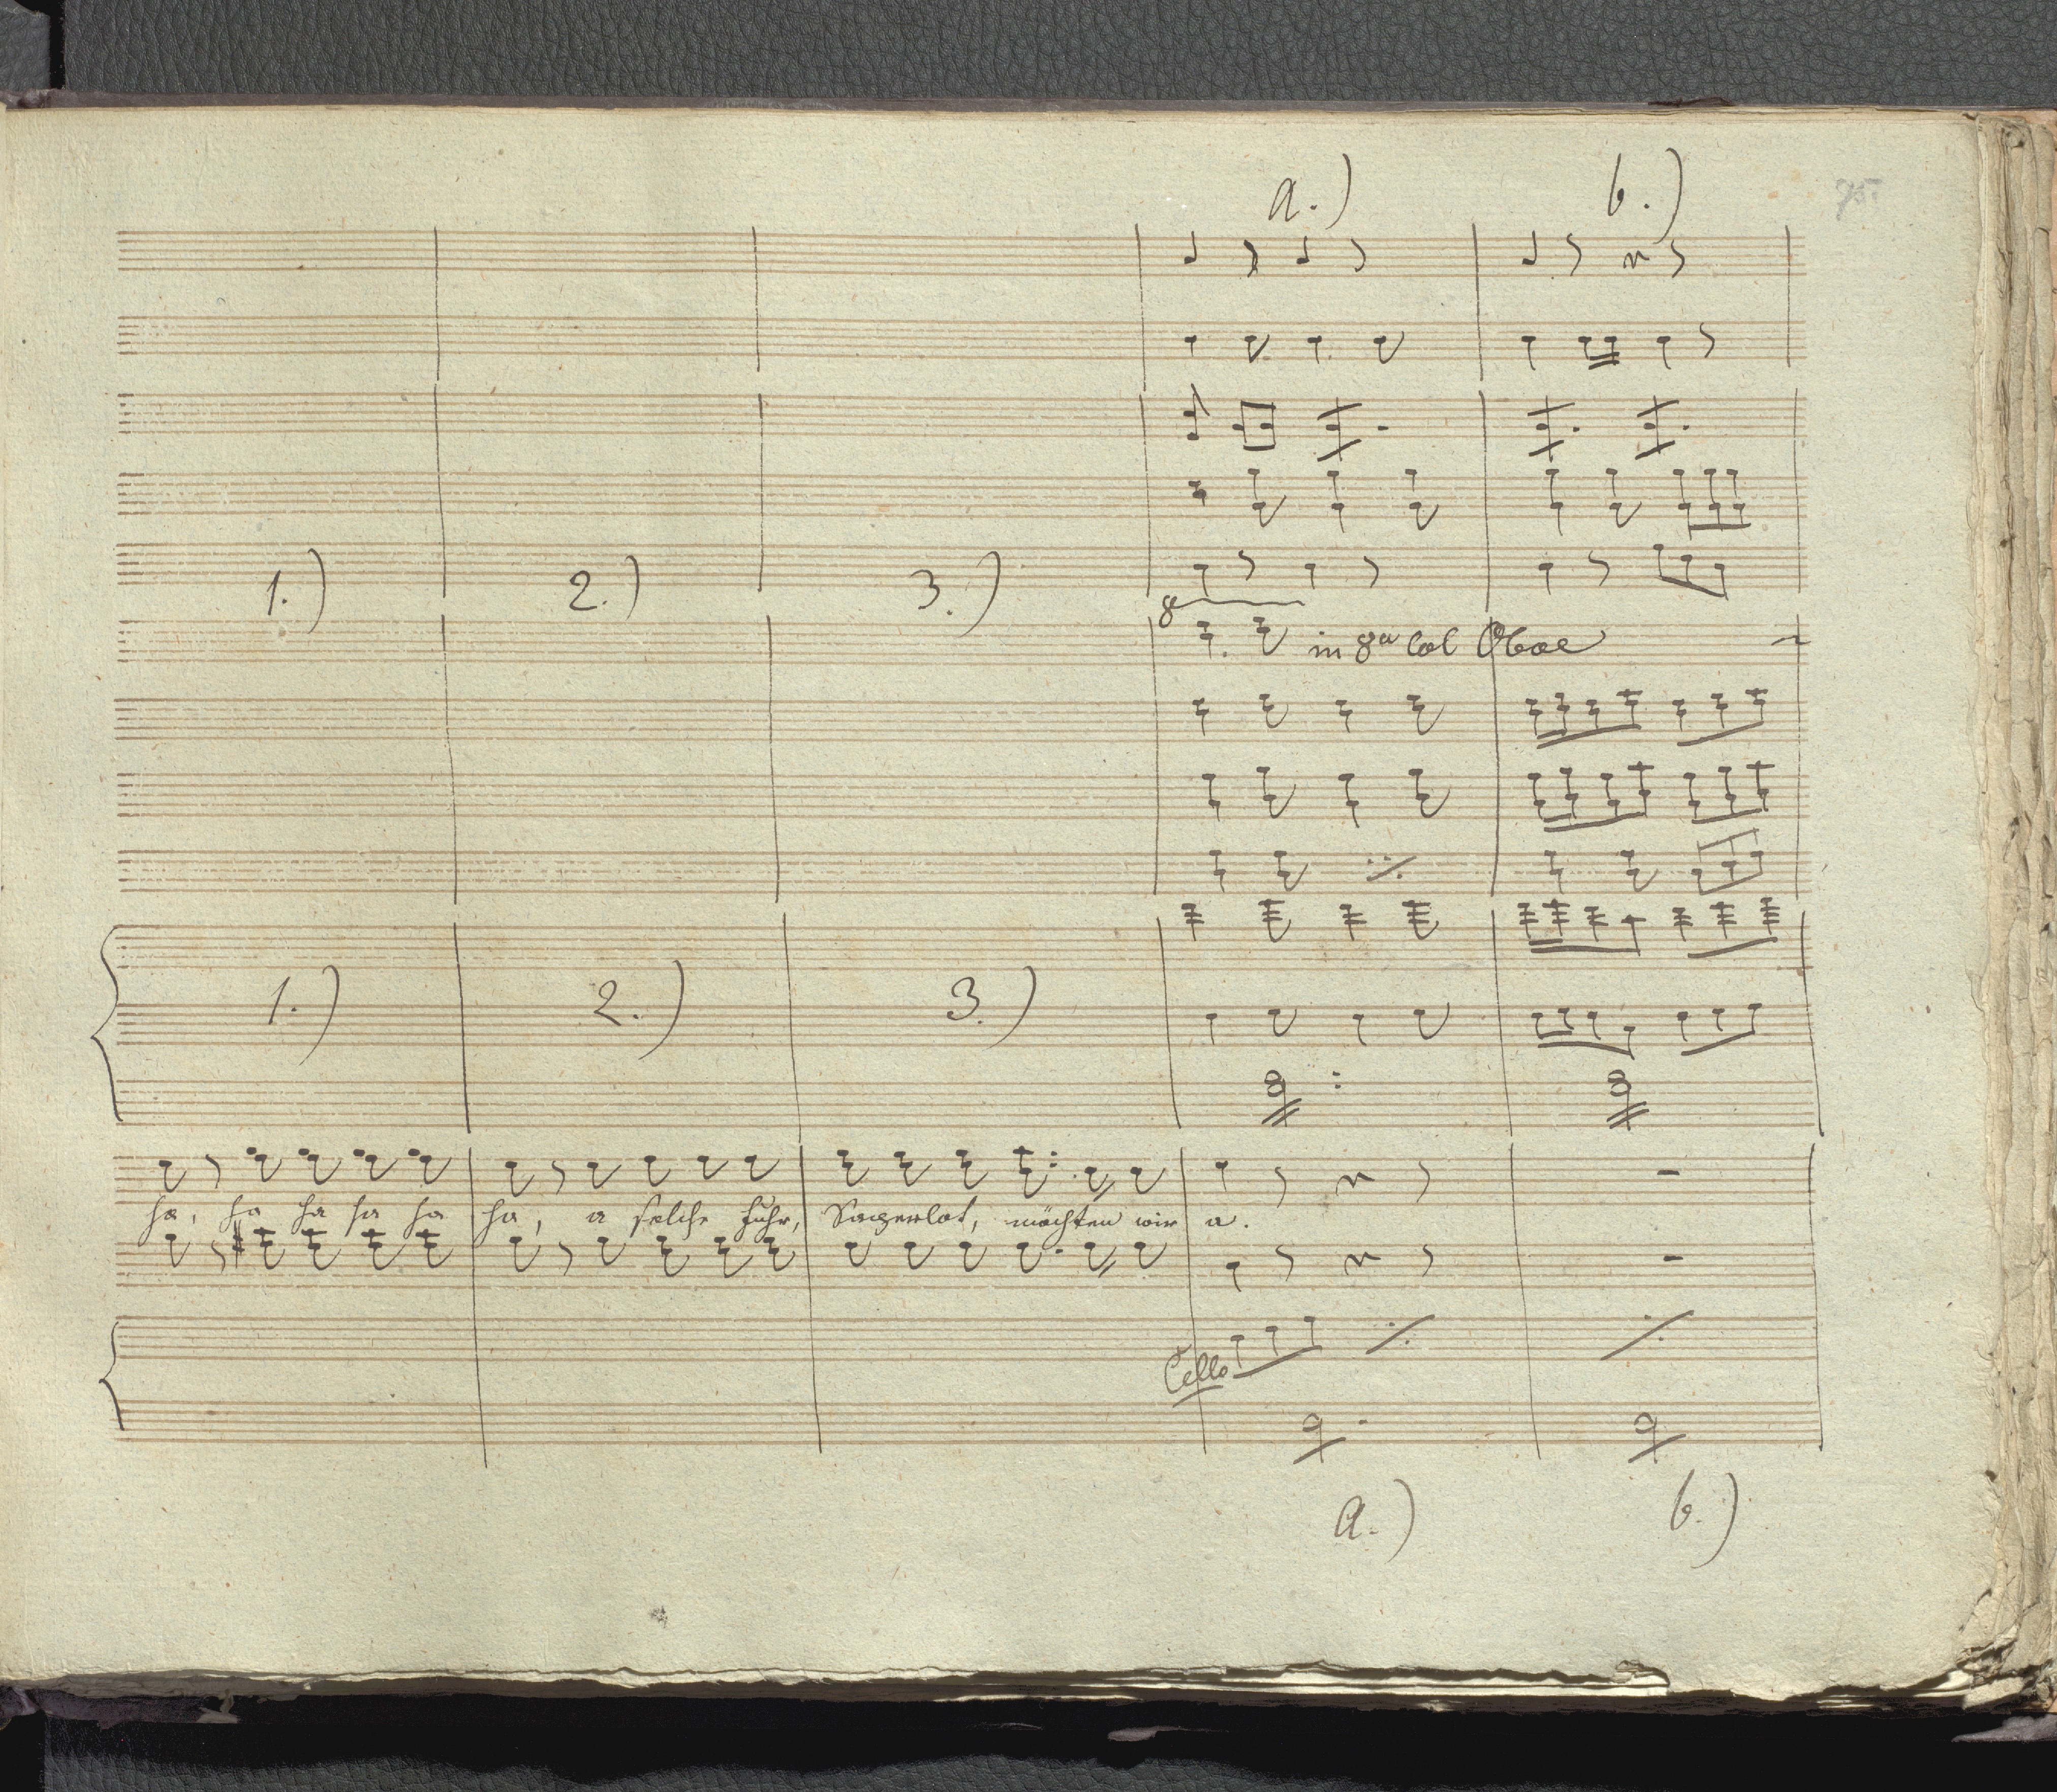 75
a.) b.)
1.) 2.) 3.)
8
in 8va col Oboe
1.) 2.) 3.)
ha, ha ha ha ha ha, a solche Fuhr, Sagerlot, möchten wir a.
Cello
a.) b.)